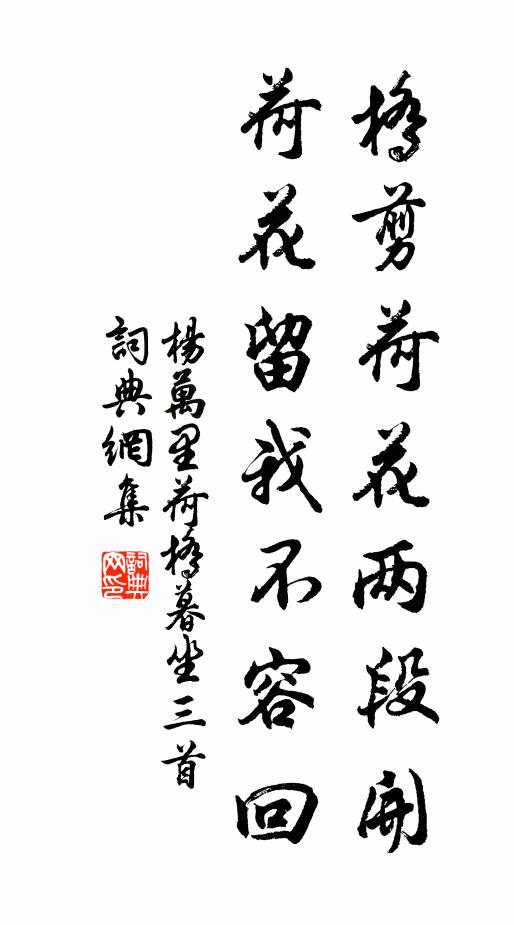 橋剪荷花两段開
荷花留我不容回
楊萬里荷橋暮坐三首
詞典網集
詞典
网印